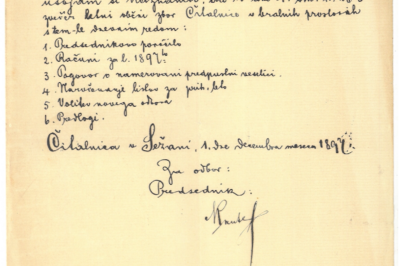 zvečer letni občni zbor Čitalnice v bralnih prostorih
s tem-le dnevnim redom:
1. Predsednikovo poročilo
2. Računi za l. 1897.
3. Pogovor o namerovani predpustni veselici.
4. Naročevanje listov za prih. leto
5. Volitev novega odbora
6. Predlogi.
Čitalnica v Sežani, 1. dne decembra meseca 1897.
Za odbor:
Predsednik: